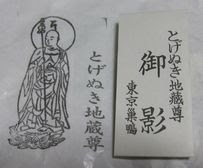 とげぬき地蔵尊
とげぬき地蔵尊
御影
東京巣鴨